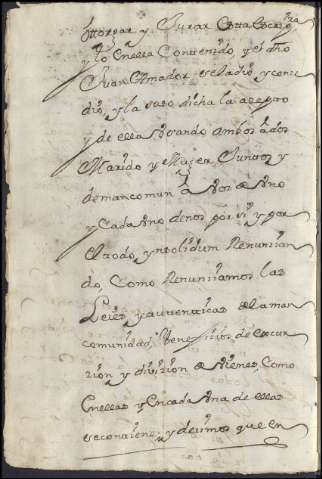 ottorgar y Jurar esta escrip.ra
y lo en ella Contenido y el dho
Juan Amador se la dio y conce
dio, y la suso dicha la acepto
y de ella usando ambos a dos
Marido y Muger Juntos y
de mancomun a voz de uno
y Cada uno de nos por si y por
el todo ynsolidum Renuncian
do, como Renunciamos las
Leies y autenticas de la man
comunidad, Benefisios de escur
zion y divizion de vienes como
en ellas y en cada una de ellas
se contiene; y decimos que en